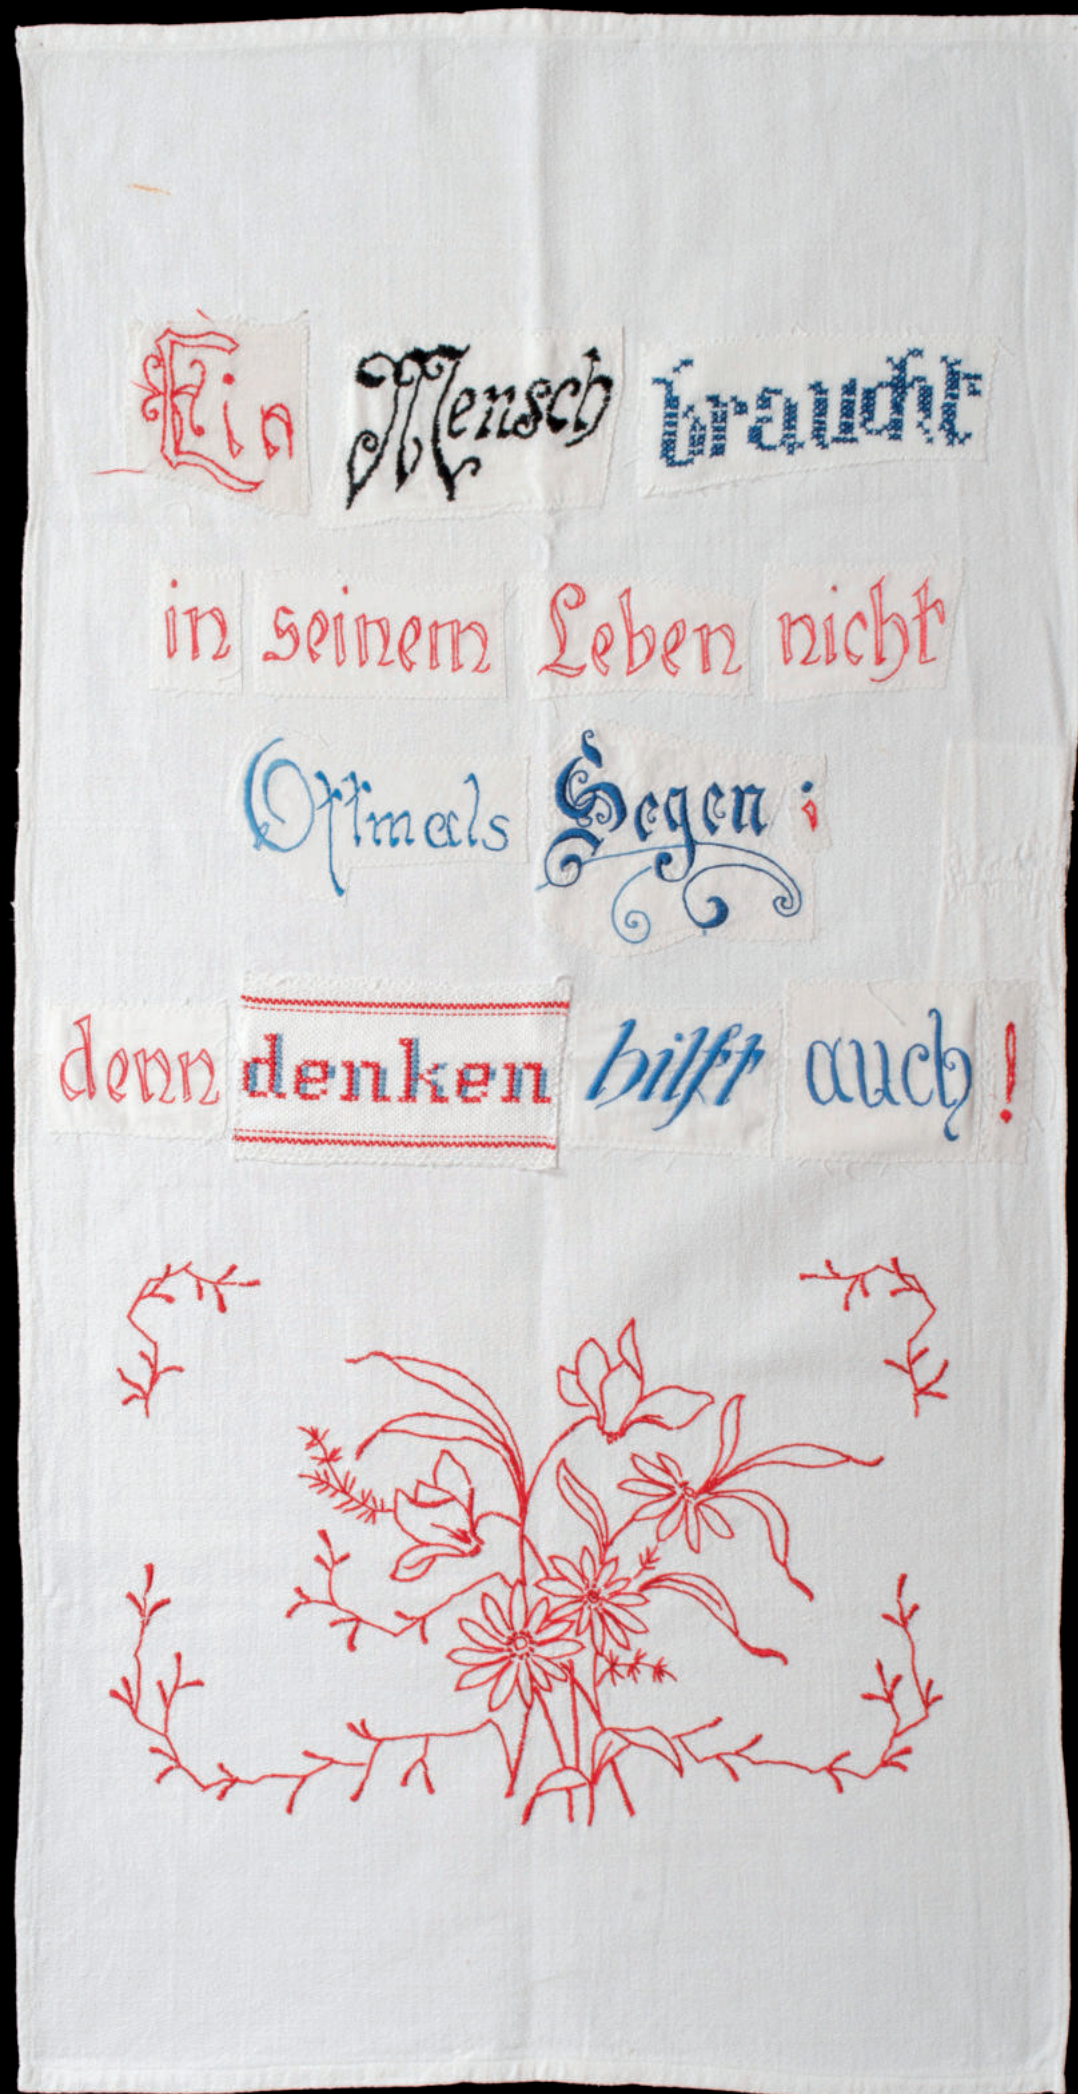 Ein Mensch braucht
in seinem Leben nicht
Oftmals Segen ;
denn denken hilft auch !